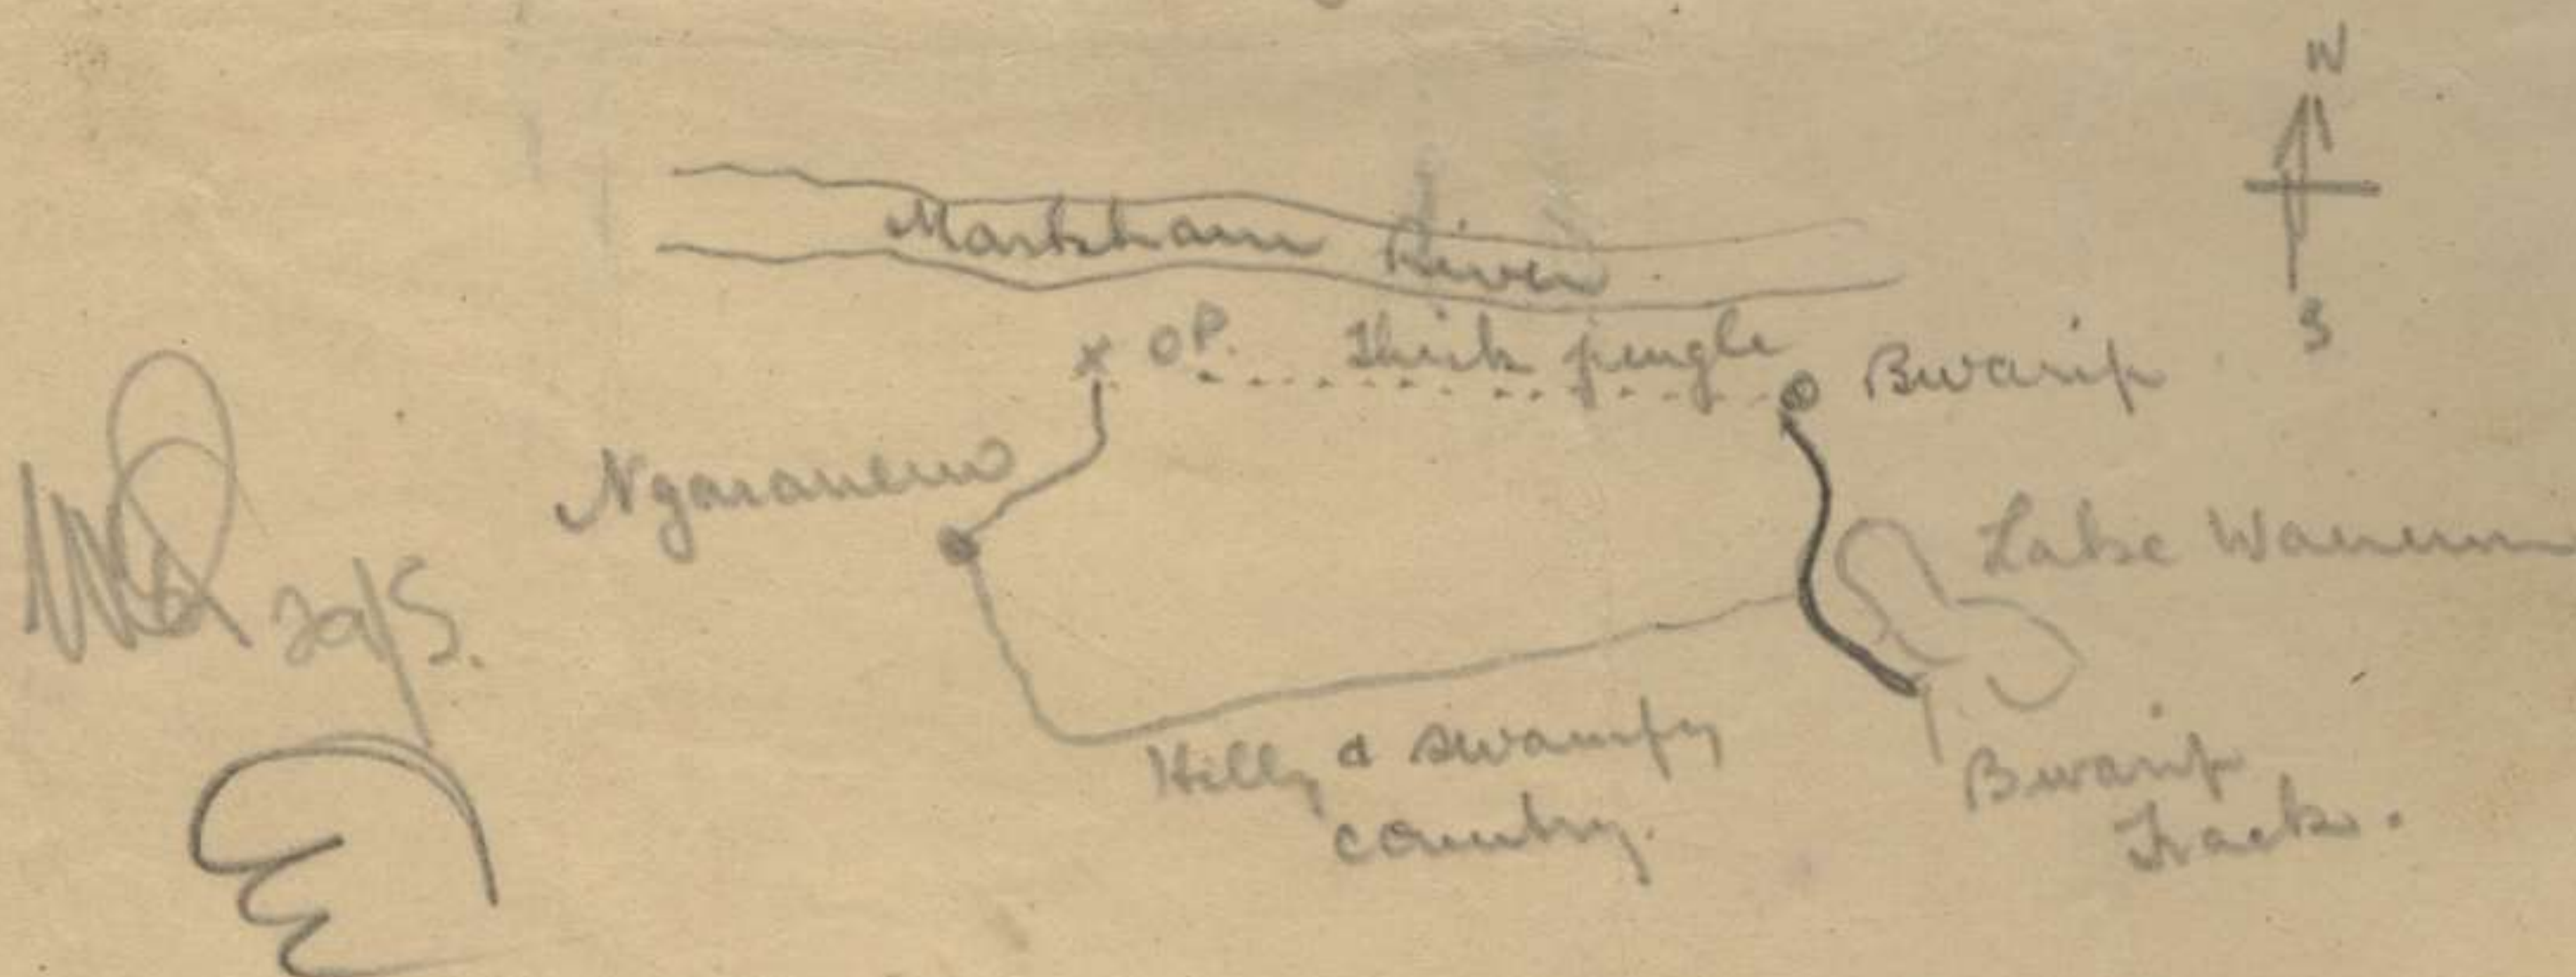 N
Markham River
S
OP. Thick jungle
Bwarip
Ngaranemo
Lake Wanum
29/5.
Hilly & swampy
country.
Bwarip
Track.